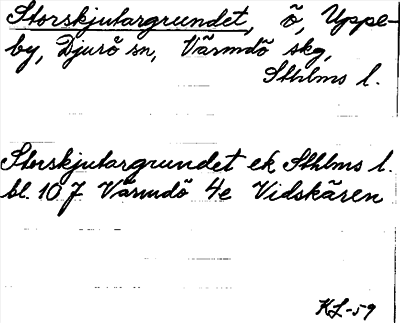 Storskjutargrundet, ö, Uppe-
by, Djurö sn, Värmdö skg,
Sthlms l.
Storskjutargrundet ek Sthlms l.
bl. 107 Värmdö 4e Vidskären
KL-59